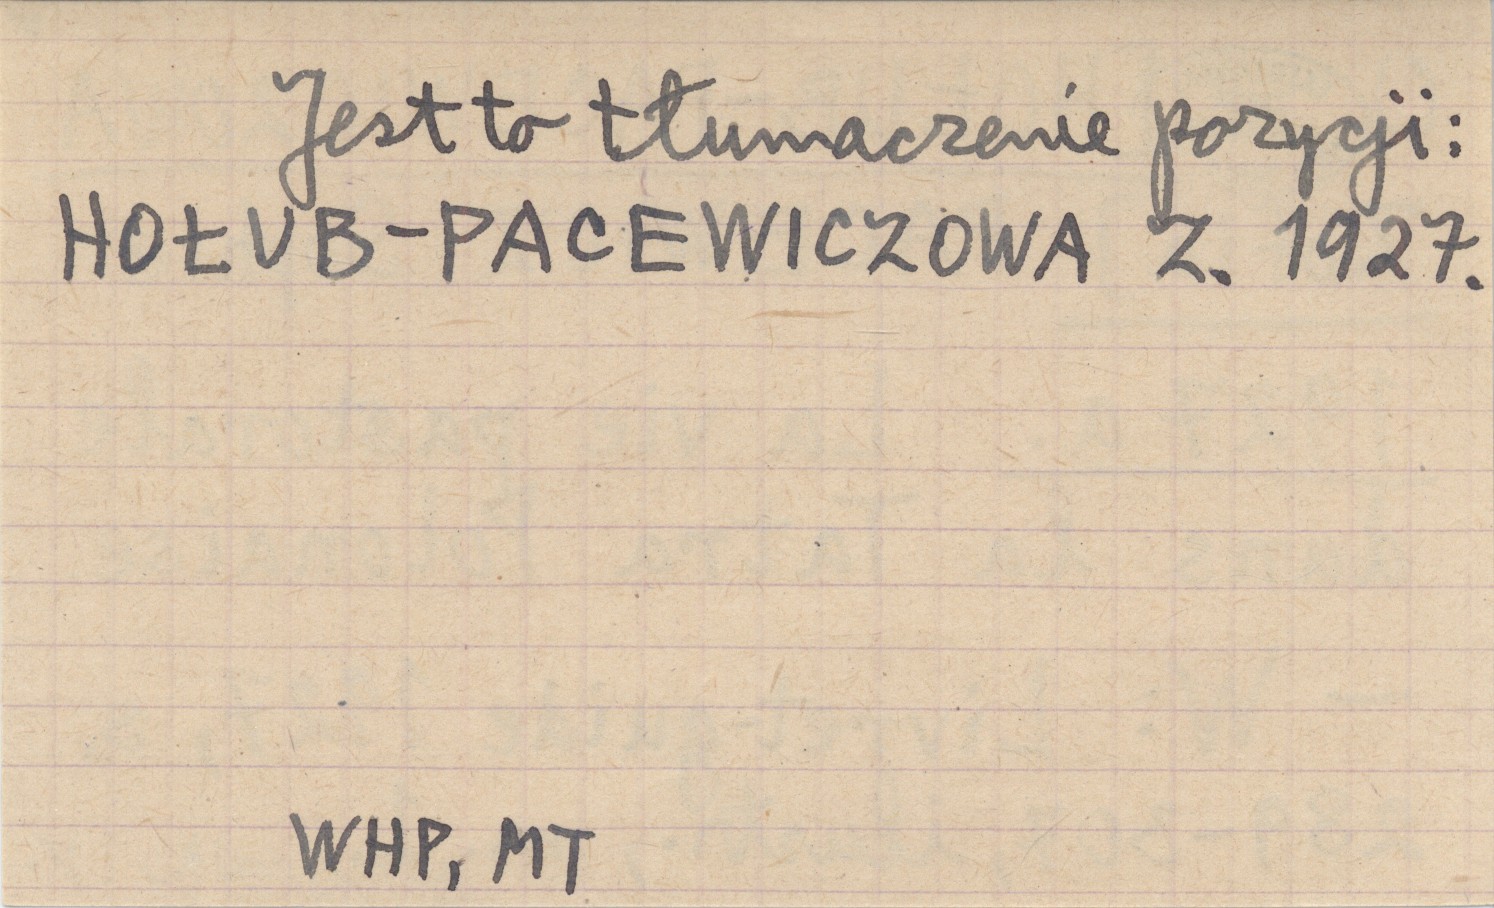 Jest to tłumaczenie pozycji:
HOŁUB-PACEWICZOWA Z. 1927.
WHP, MT